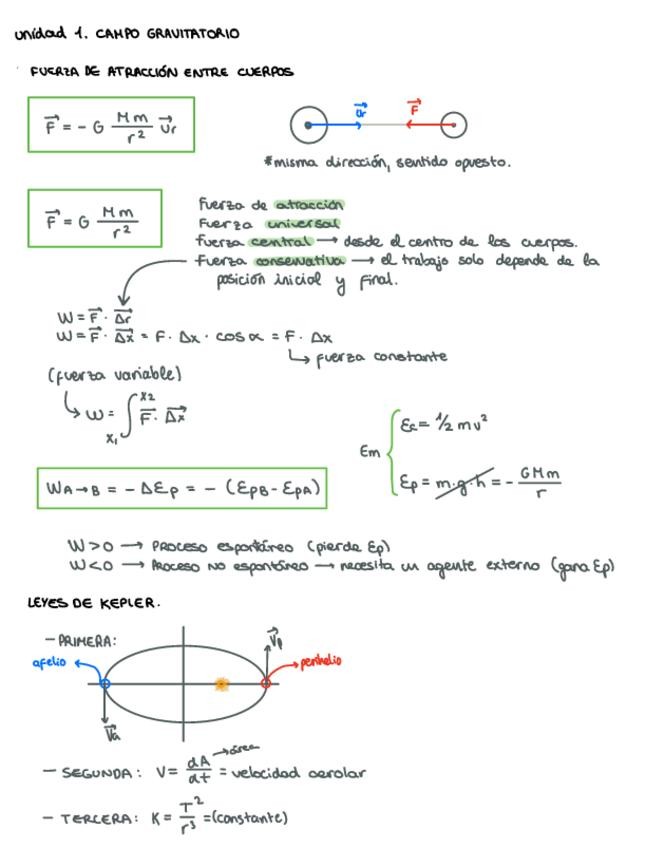 unidad 1. CAMPO GRAVITATORIO
FUERZA DE ATRACCIÓN ENTRE CUERPOS
F⃗ = - G Mm/r² U⃗r
U⃗r F⃗
*misma dirección, sentido opuesto.
F⃗ = G Mm/r²
Fuerza de atracción
Fuerza universal
fuerza central → desde el centro de los cuerpos.
Fuerza conservativa → el trabajo solo depende de la
posición inicial y final.
W = F⃗ · Δr⃗
W = F⃗ · Δx⃗ = F · Δx · cos α = F · Δx
↳ fuerza constante
(fuerza variable)
↳ W = ∫x₁^x2 F⃗ · Δx⃗
Em { Ec = 1/2 mv²
Ep = m·g·h = - GMm/r
WA→B = - ΔEp = - (EpB - EpA)
W>0 → PROCESO espontáneo (pierde Ep)
W<0 → PROCESO NO espontáneo → necesita un agente externo (gana Ep)
LEYES DE KEPLER.
- PRIMERA:
V⃗p
afelio
perihelio
V⃗a
- SEGUNDA: V = dA/dt = velocidad aerolar
→ área
- TERCERA: K = T²/r³ = (constante)